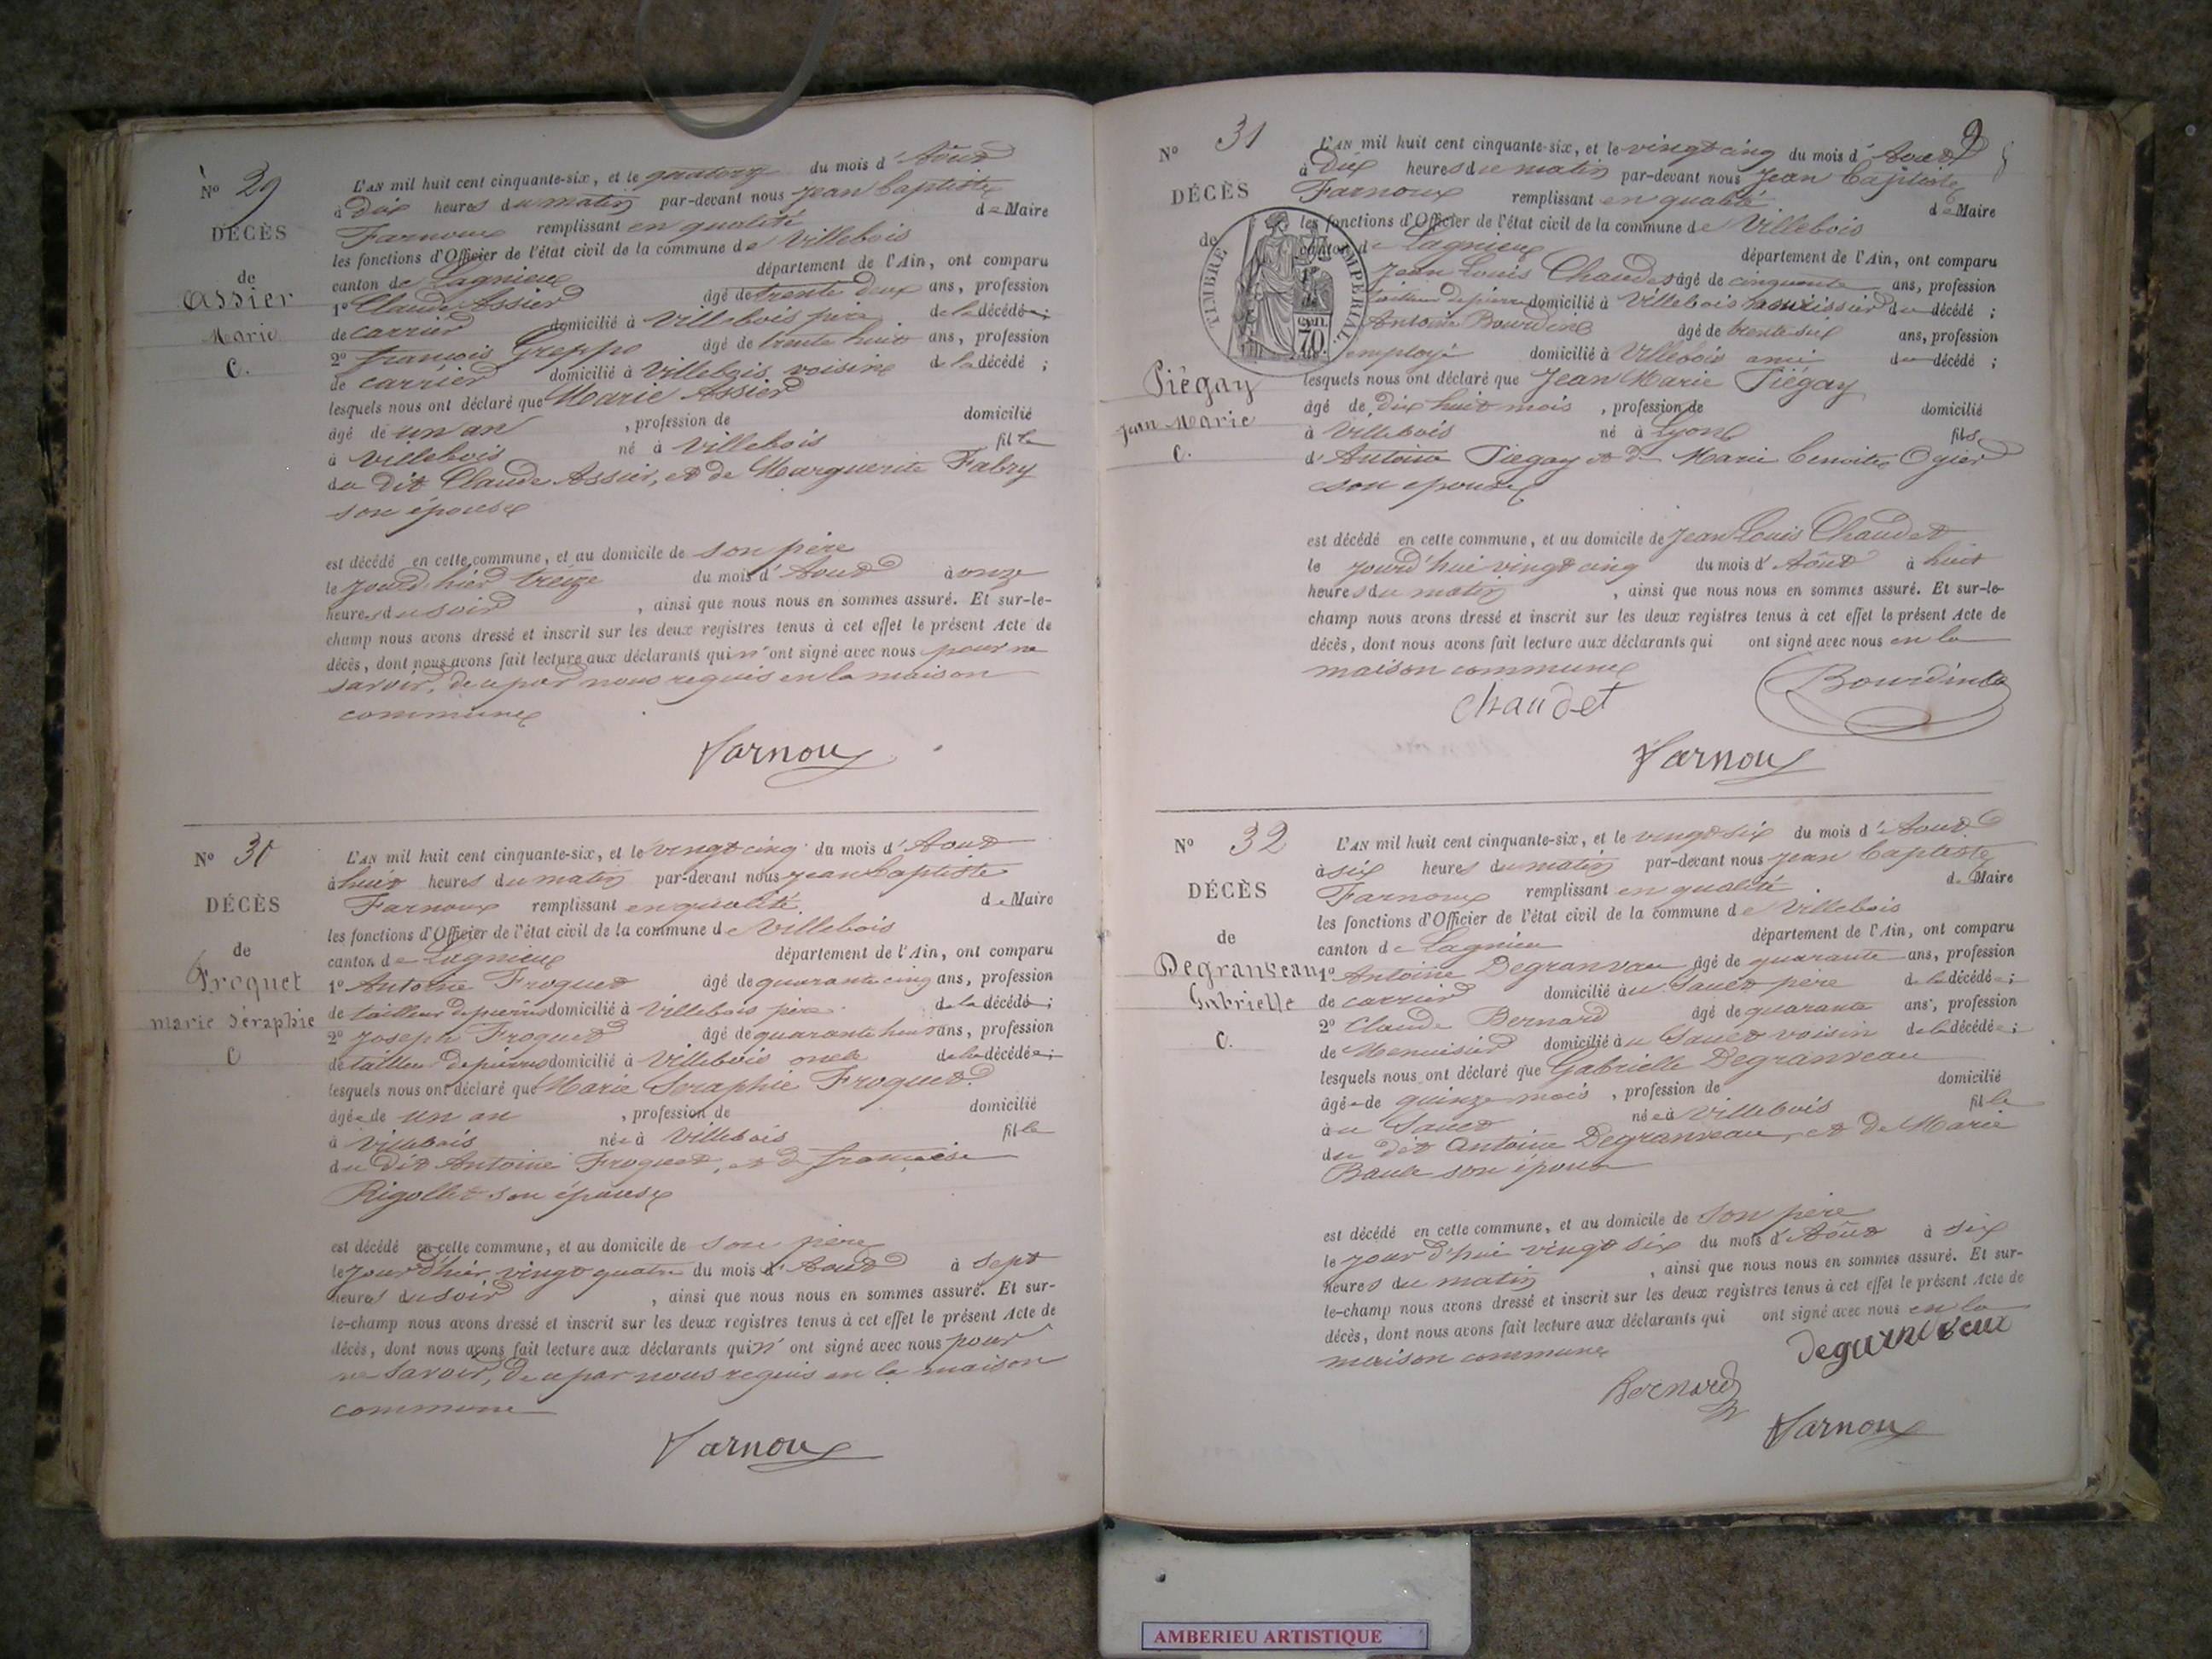 N° 29
DÉCÈS
de
Assier
Marie
C.
L'AN mil huit cent cinquante-six, et le quatorze du mois d'Août
à dix heures du matin par-devant nous Jean Baptiste
Farnoux remplissant en qualité de Maire
les fonctions d'Officier de l'état civil de la commune de Villebois
canton de Lagnieux département de l'Ain, ont comparu
1° Claude Assier âgé de trente deux ans, profession
de carrier domicilié à Villebois père de la décédée ;
2° françois Greppo âgé de trente huit ans, profession
de carrier domicilié à Villebois voisin de la décédé ;
lesquels nous ont déclaré que Marie Assier
âgé de un an , profession de domicilié
à Villebois né à Villebois fille
du dit Claude Assier, et de Marguerite Fabry
son épouse
est décédé en cette commune, et au domicile de son père
le jourd'hier treize du mois d'Aout à onze
heures du soir , ainsi que nous nous en sommes assuré. Et sur-le-
champ nous avons dressé et inscrit sur les deux registres tenus à cet effet le présent Acte de
décès, dont nous avons fait lecture aux déclarants qui n'ont signé avec nous pour ne
savoir, de ce par nous requis en la maison
commune
Farnoux
N° 30
DÉCÈS
de
Froquet
Marie Séraphie
C
L'AN mil huit cent cinquante-six, et le vingt cinq du mois d'Aout
à huit heures du matin par-devant nous Jean Baptiste
Farnoux remplissant en qualité de Maire
les fonctions d'Officier de l'état civil de la commune de Villebois
canton de Lagnieux département de l'Ain, ont comparu
1° Antoine Froquet âgé de quarante cinq ans, profession
de tailleur de pierres domicilié à Villebois père de la décédé ;
2° Joseph Froquet âgé de quarante huit ans, profession
de tailleur de pierres domicilié à Villebois oncle de la décédée ;
lesquels nous ont déclaré que Marie Séraphie Froquet
âgée de un an , profession de domicilié
à Villebois née à Villebois fille
du dit Antoine Froquet, et de françoise
Rigollet son épouse
est décédé en cette commune, et au domicile de son père
le jourd'hier vingt quatre du mois d'Aout à sept
heures du soir , ainsi que nous nous en sommes assuré. Et sur-
le-champ nous avons dressé et inscrit sur les deux registres tenus à cet effet le présent Acte de
décès, dont nous avons fait lecture aux déclarants qui n'ont signé avec nous pour
ne savoir, de ce par nous requis en la maison
commune
Farnoux
N° 31
DÉCÈS
de
TIMBRE IMPÉRIAL
70
Piégay
Jean Marie
C.
L'AN mil huit cent cinquante-six, et le vingt cinq du mois d'Aout
à Dix heures du matin par-devant nous Jean Baptiste
Farnoux remplissant en qualité de Maire
les fonctions d'Officier de l'état civil de la commune de Villebois
canton de Lagnieux département de l'Ain, ont comparu
Jean Louis Chaudet âgé de cinquante ans, profession
tailleur de pierres domicilié à Villebois nourissier du décédé ;
Antoine Bourdin âgé de trente six ans, profession
employé domicilié à Villebois ami du décédé ;
lesquels nous ont déclaré que Jean Marie Piégay
âgé de dix huit mois , profession de domicilié
à Villebois né à Lyon fils
d'Antoine Piegay et de Marie Benoite Ogier
son épouse
est décédé en cette commune, et au domicile de Jean Louis Chaudet
le jourd'hui vingt cinq du mois d'Août à huit
heures du matin , ainsi que nous nous en sommes assuré. Et sur-le-
champ nous avons dressé et inscrit sur les deux registres tenus à cet effet le présent Acte de
décès, dont nous avons fait lecture aux déclarants qui ont signé avec nous en la
maison commune
chaudet Bourdin
Farnoux
N° 32
DÉCÈS
de
Degranveau
Gabrielle
C.
L'AN mil huit cent cinquante-six, et le vingt six du mois d'Aout
à six heures du matin par-devant nous Jean Baptiste
Farnoux remplissant en qualité de Maire
les fonctions d'Officier de l'état civil de la commune de Villebois
canton de Lagnieu département de l'Ain, ont comparu
1° Antoine Degranveau âgé de quarante ans, profession
de carrier domicilié au Sault père de la décédée ;
2° Claude Bernard âgé de quarante ans, profession
de Menuisier domicilié au Sault voisin de la décédée ;
lesquels nous ont déclaré que Gabrielle Degranveau
âgée de quinze mois , profession de domicilié
au Sault née à Villebois fille
du dit Antoine Degranveau, et de Marie
son épouse
est décédé en cette commune, et au domicile de son père
le jour d'hui vingt six du mois d'Août à six
heures du matin , ainsi que nous nous en sommes assuré. Et sur-
le-champ nous avons dressé et inscrit sur les deux registres tenus à cet effet le présent Acte de
décès, dont nous avons fait lecture aux déclarants qui ont signé avec nous en la
maison commune
Bernard
Farnoux
AMBERIEU ARTISTIQUE